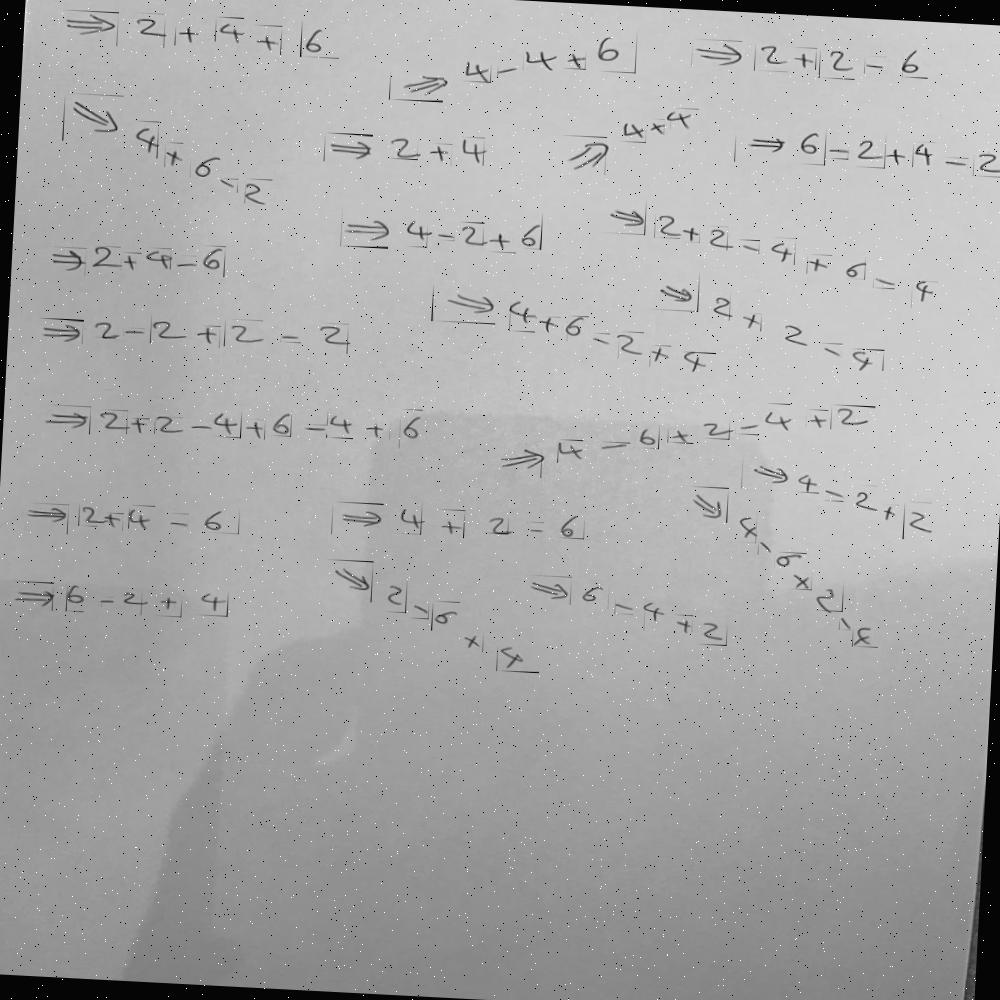 ⇒ 2 + 4 + 6
⇒ 4 - 4 + 6
⇒ 2 + 2 - 6
⇒ 4 + 6 - 2
⇒ 2 + 4
⇒ 4 + 4
⇒ 6 - 2 + 4 - 2
⇒ 2 + 4 - 6
⇒ 4 - 2 + 6
⇒ 2 + 2 = 4 + 6 = 4
⇒ 2 - 2 + 2 = 2
⇒ 4 + 6 = 2 + 4
⇒ 2 + 2 = 4
⇒ 2 + 2 - 4 + 6 - 4 + 6
⇒ 4 - 6 + 2 = 4 + 2
⇒ 4 = 2 + 2
⇒ 2 + 4 = 6
⇒ 4 + 2 = 6
⇒ 4 - 6 + 2 -
⇒ 6 - 2 + 4
⇒ 2 - 6 + 4
⇒ 6 - 4 + 2